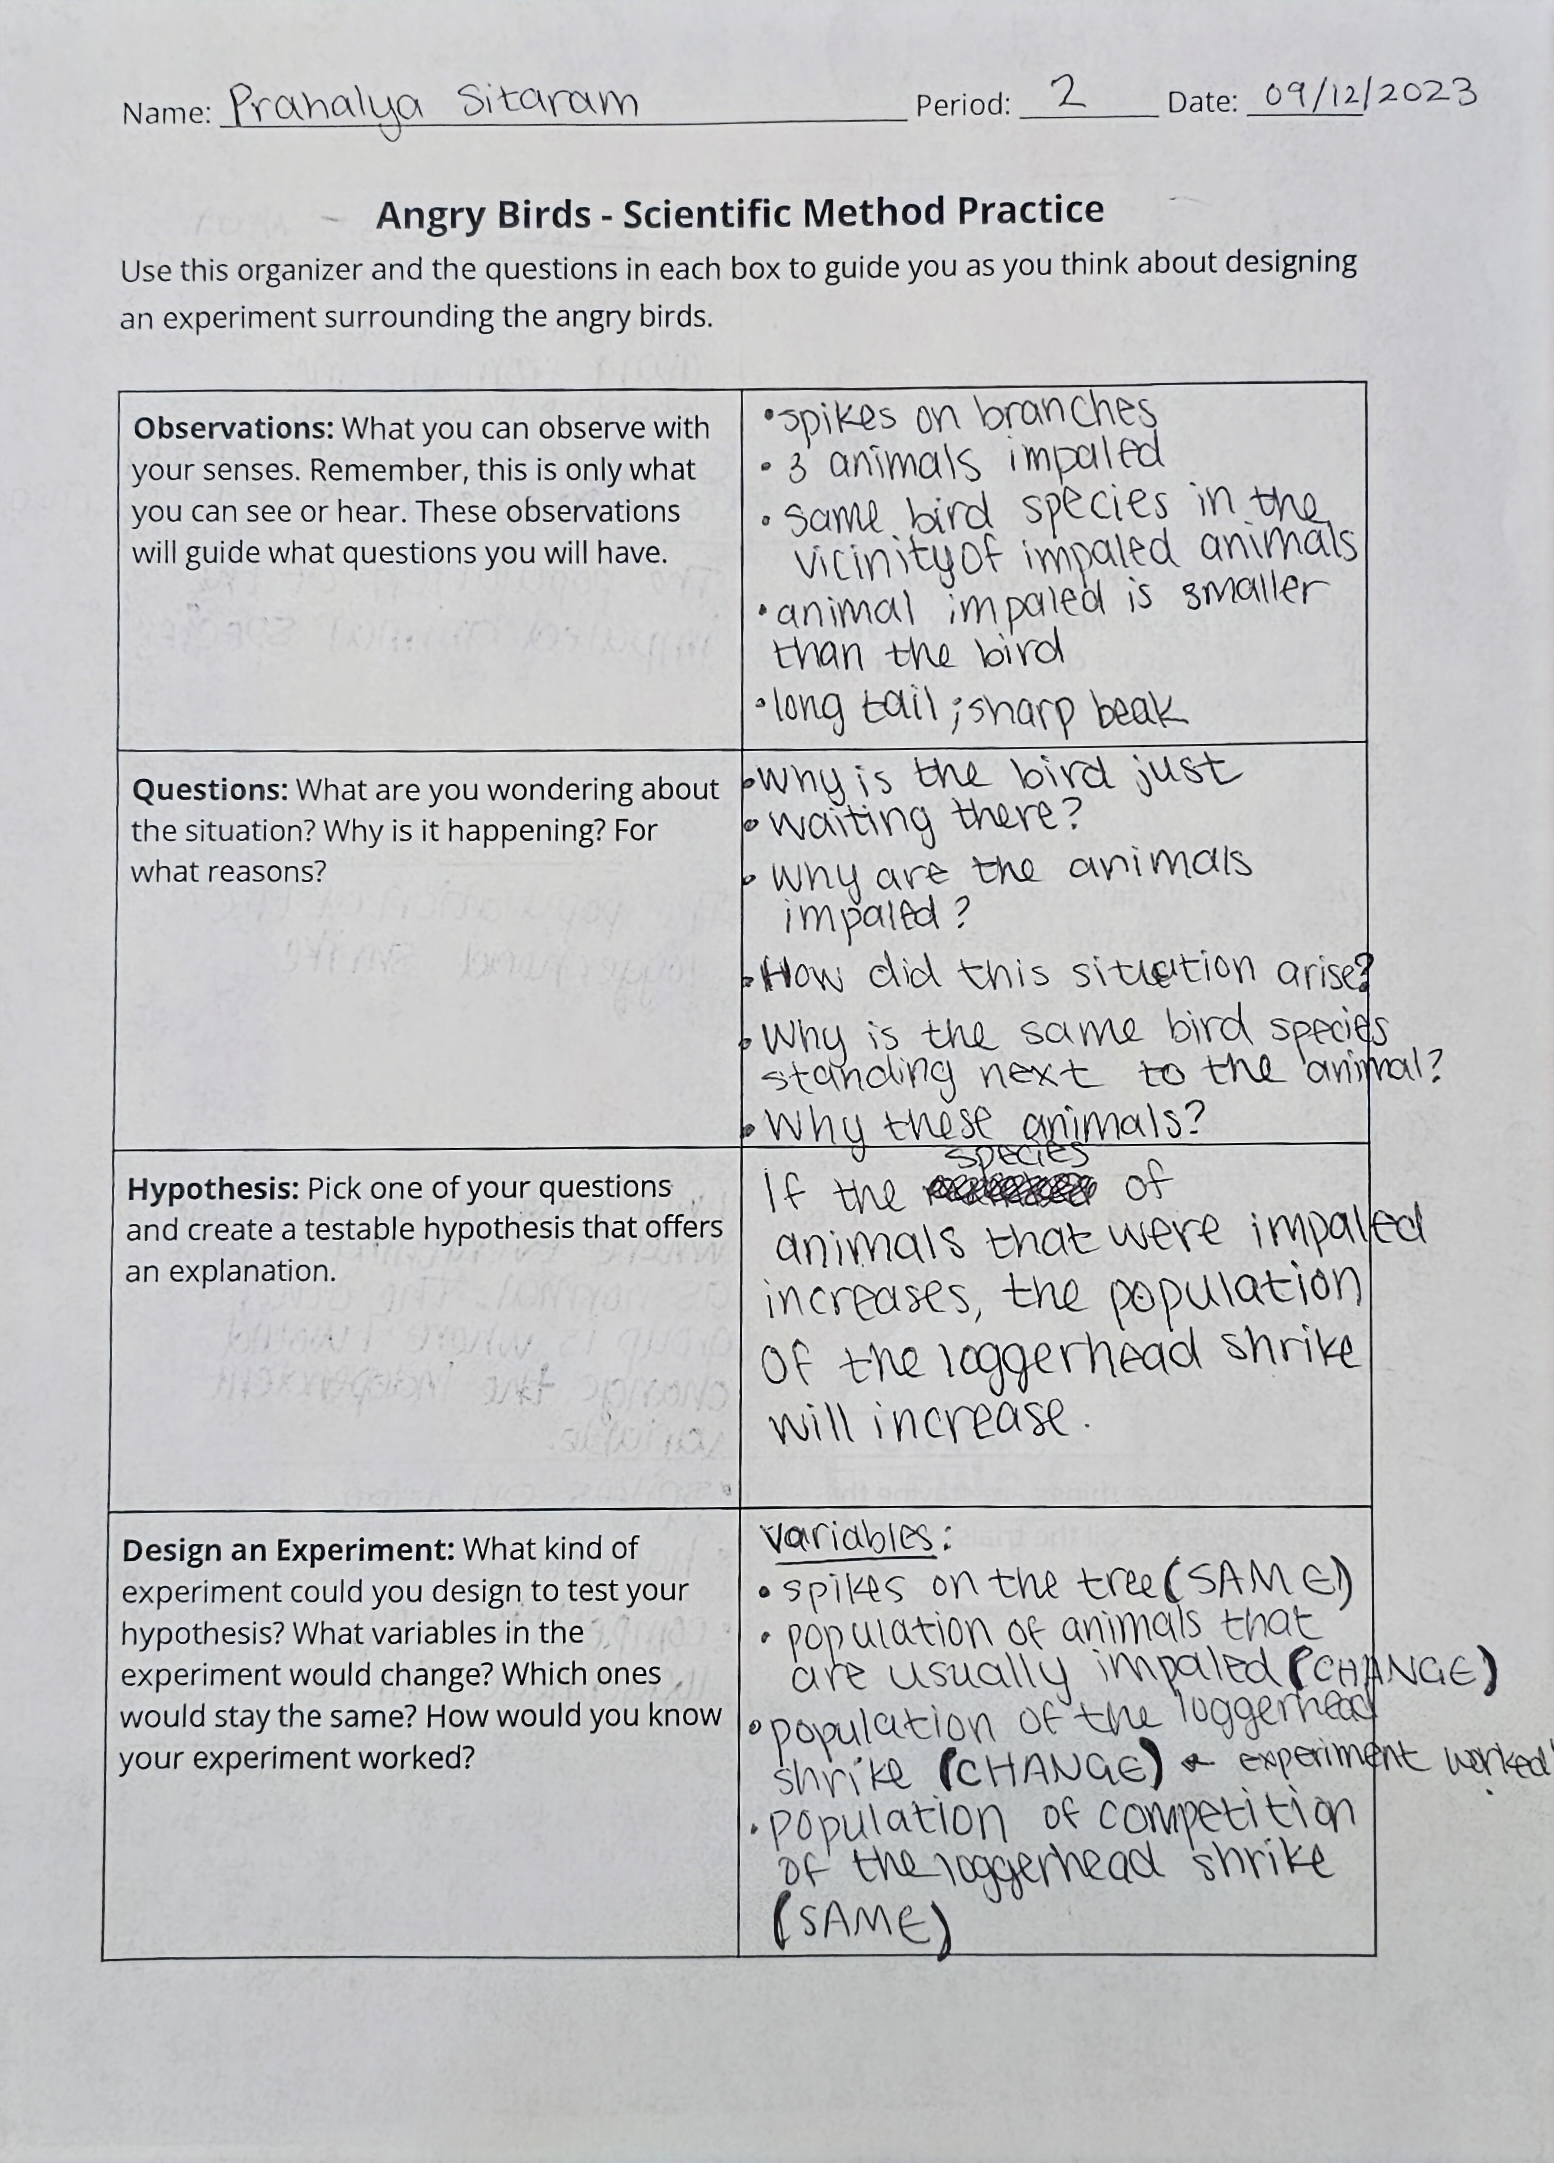 Name: Prahalya Sitaram Period: 2 Date: 09/12/2023
Angry Birds - Scientific Method Practice
Use this organizer and the questions in each box to guide you as you think about designing
an experiment surrounding the angry birds.
Observations: What you can observe with
your senses. Remember, this is only what
you can see or hear. These observations
will guide what questions you will have.
•spikes on branches
• 3 animals impaled
• same bird species in the
vicinity of impaled animals
• animal impaled is smaller
than the bird
• long tail ; sharp beak
Questions: What are you wondering about
the situation? Why is it happening? For
what reasons?
• Why is the bird just
• waiting there?
• Why are the animals
impaled?
• How did this situation arise?
• Why is the same bird species
standing next to the animal?
• Why these animals?
Hypothesis: Pick one of your questions
and create a testable hypothesis that offers
an explanation.
If the species of
animals that were impaled
increases, the population
of the loggerhead shrike
will increase.
Design an Experiment: What kind of
experiment could you design to test your
hypothesis? What variables in the
experiment would change? Which ones
would stay the same? How would you know
your experiment worked?
Variables:
• spikes on the tree (SAME)
• population of animals that
are usually impaled (CHANGE)
• population of the loggerhead
shrike (CHANGE) ← experiment worked
• population of competition
of the loggerhead shrike
(SAME)